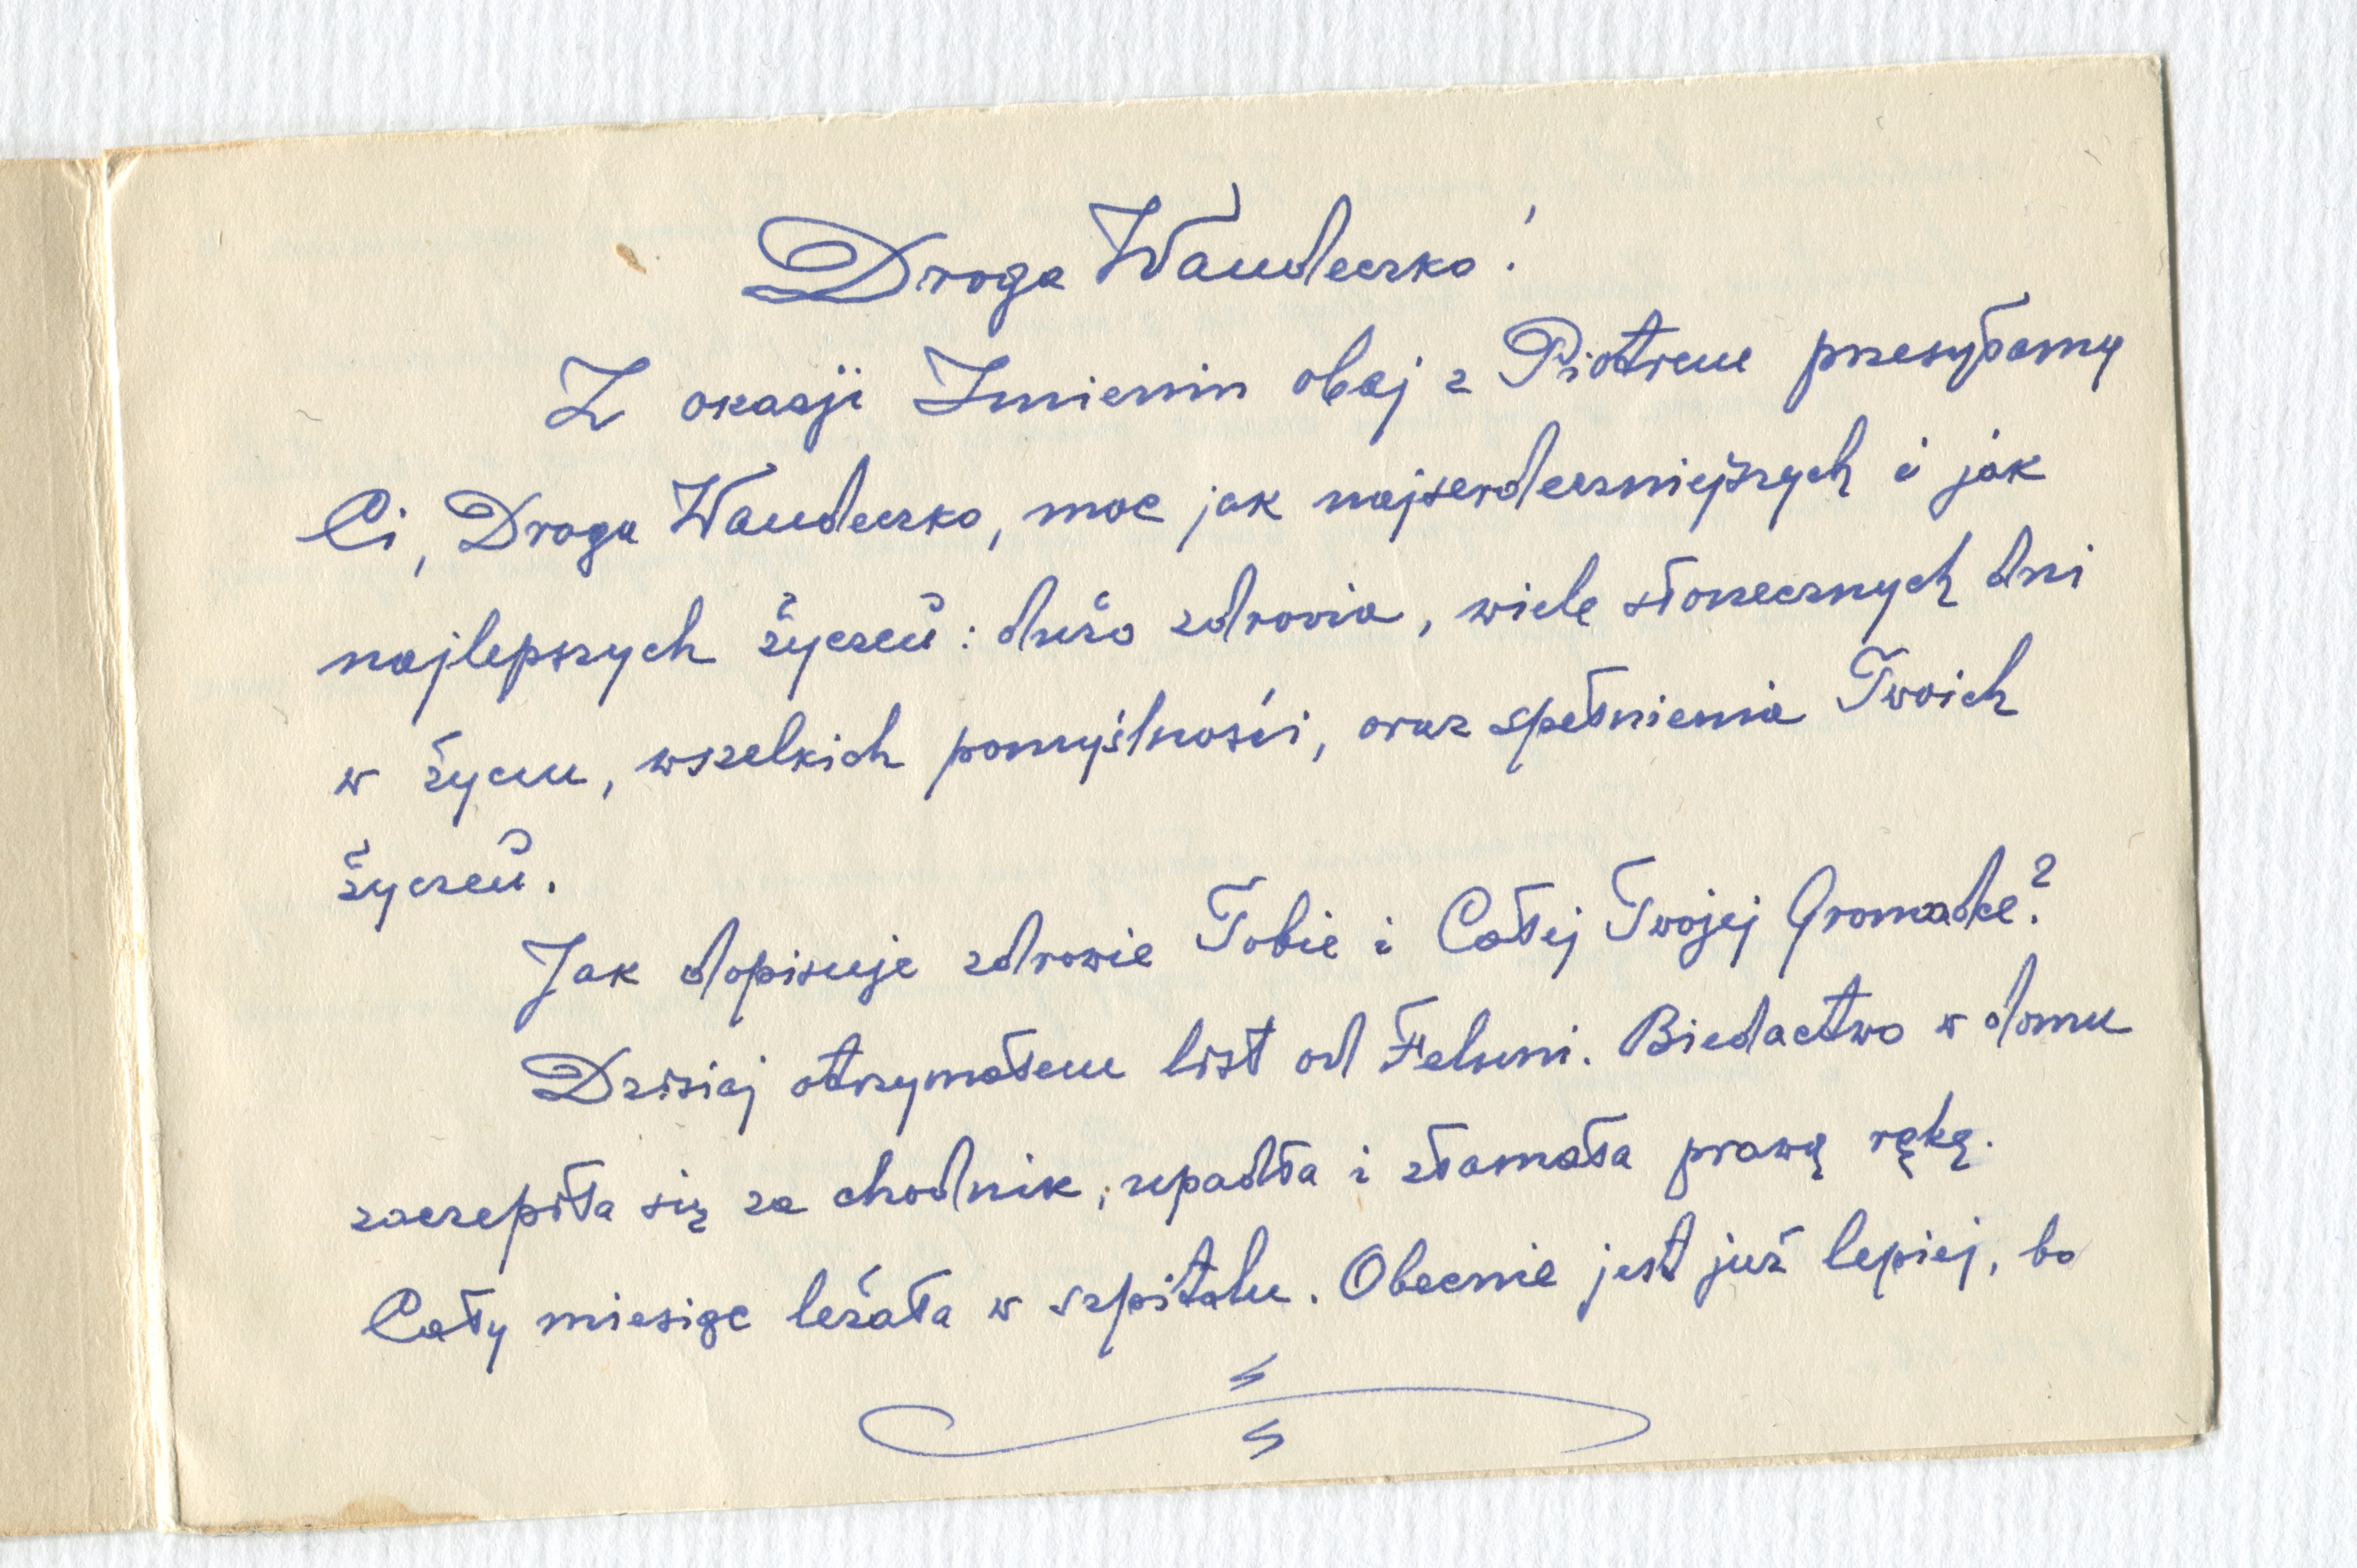 Droga Wandeczko!
Z okazji Imienin obaj z Piotrem przesyłamy
Ci, Droga Wandeczko, moc jak najserdeczniejszych i jak
najlepszych życzeń: dużo zdrowia, wiele słonecznych dni
w życiu, wszelkich pomyślności, oraz spełnienia Twoich
życzeń.
Jak dopisuje zdrowie Tobie i Całej Twojej Gromadce?
Dzisiaj otrzymałem list od Feluni. Biedactwo w domu
zaczepiła się za chodnik, upadła i złamała prawą rękę.
Cały miesiąc leżała w szpitalu. Obecnie jest już lepiej, bo